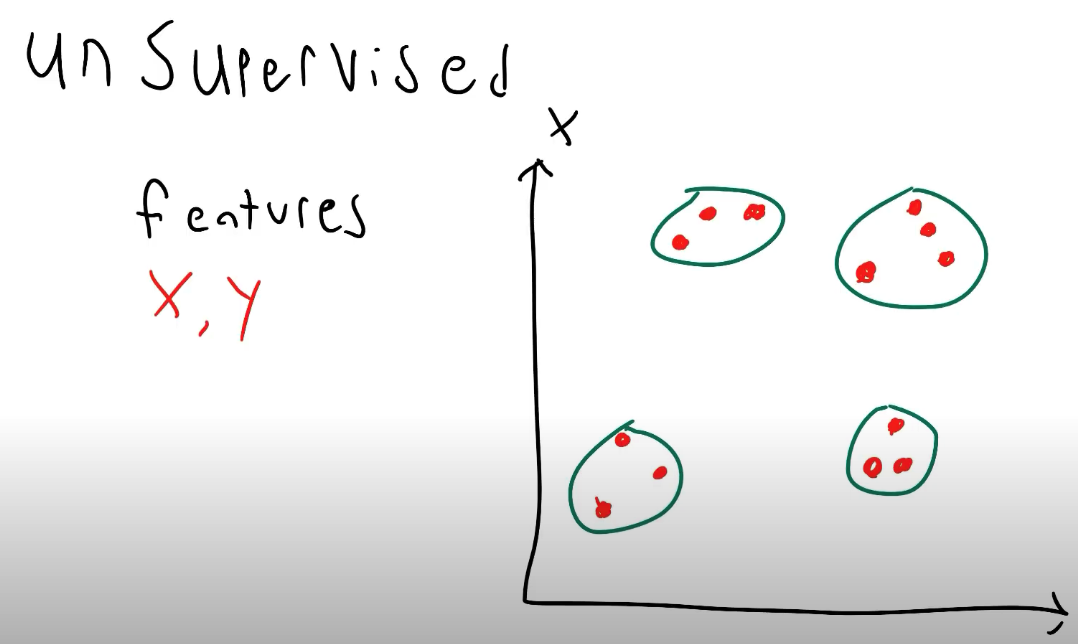 unSupervised
features
X, Y
X